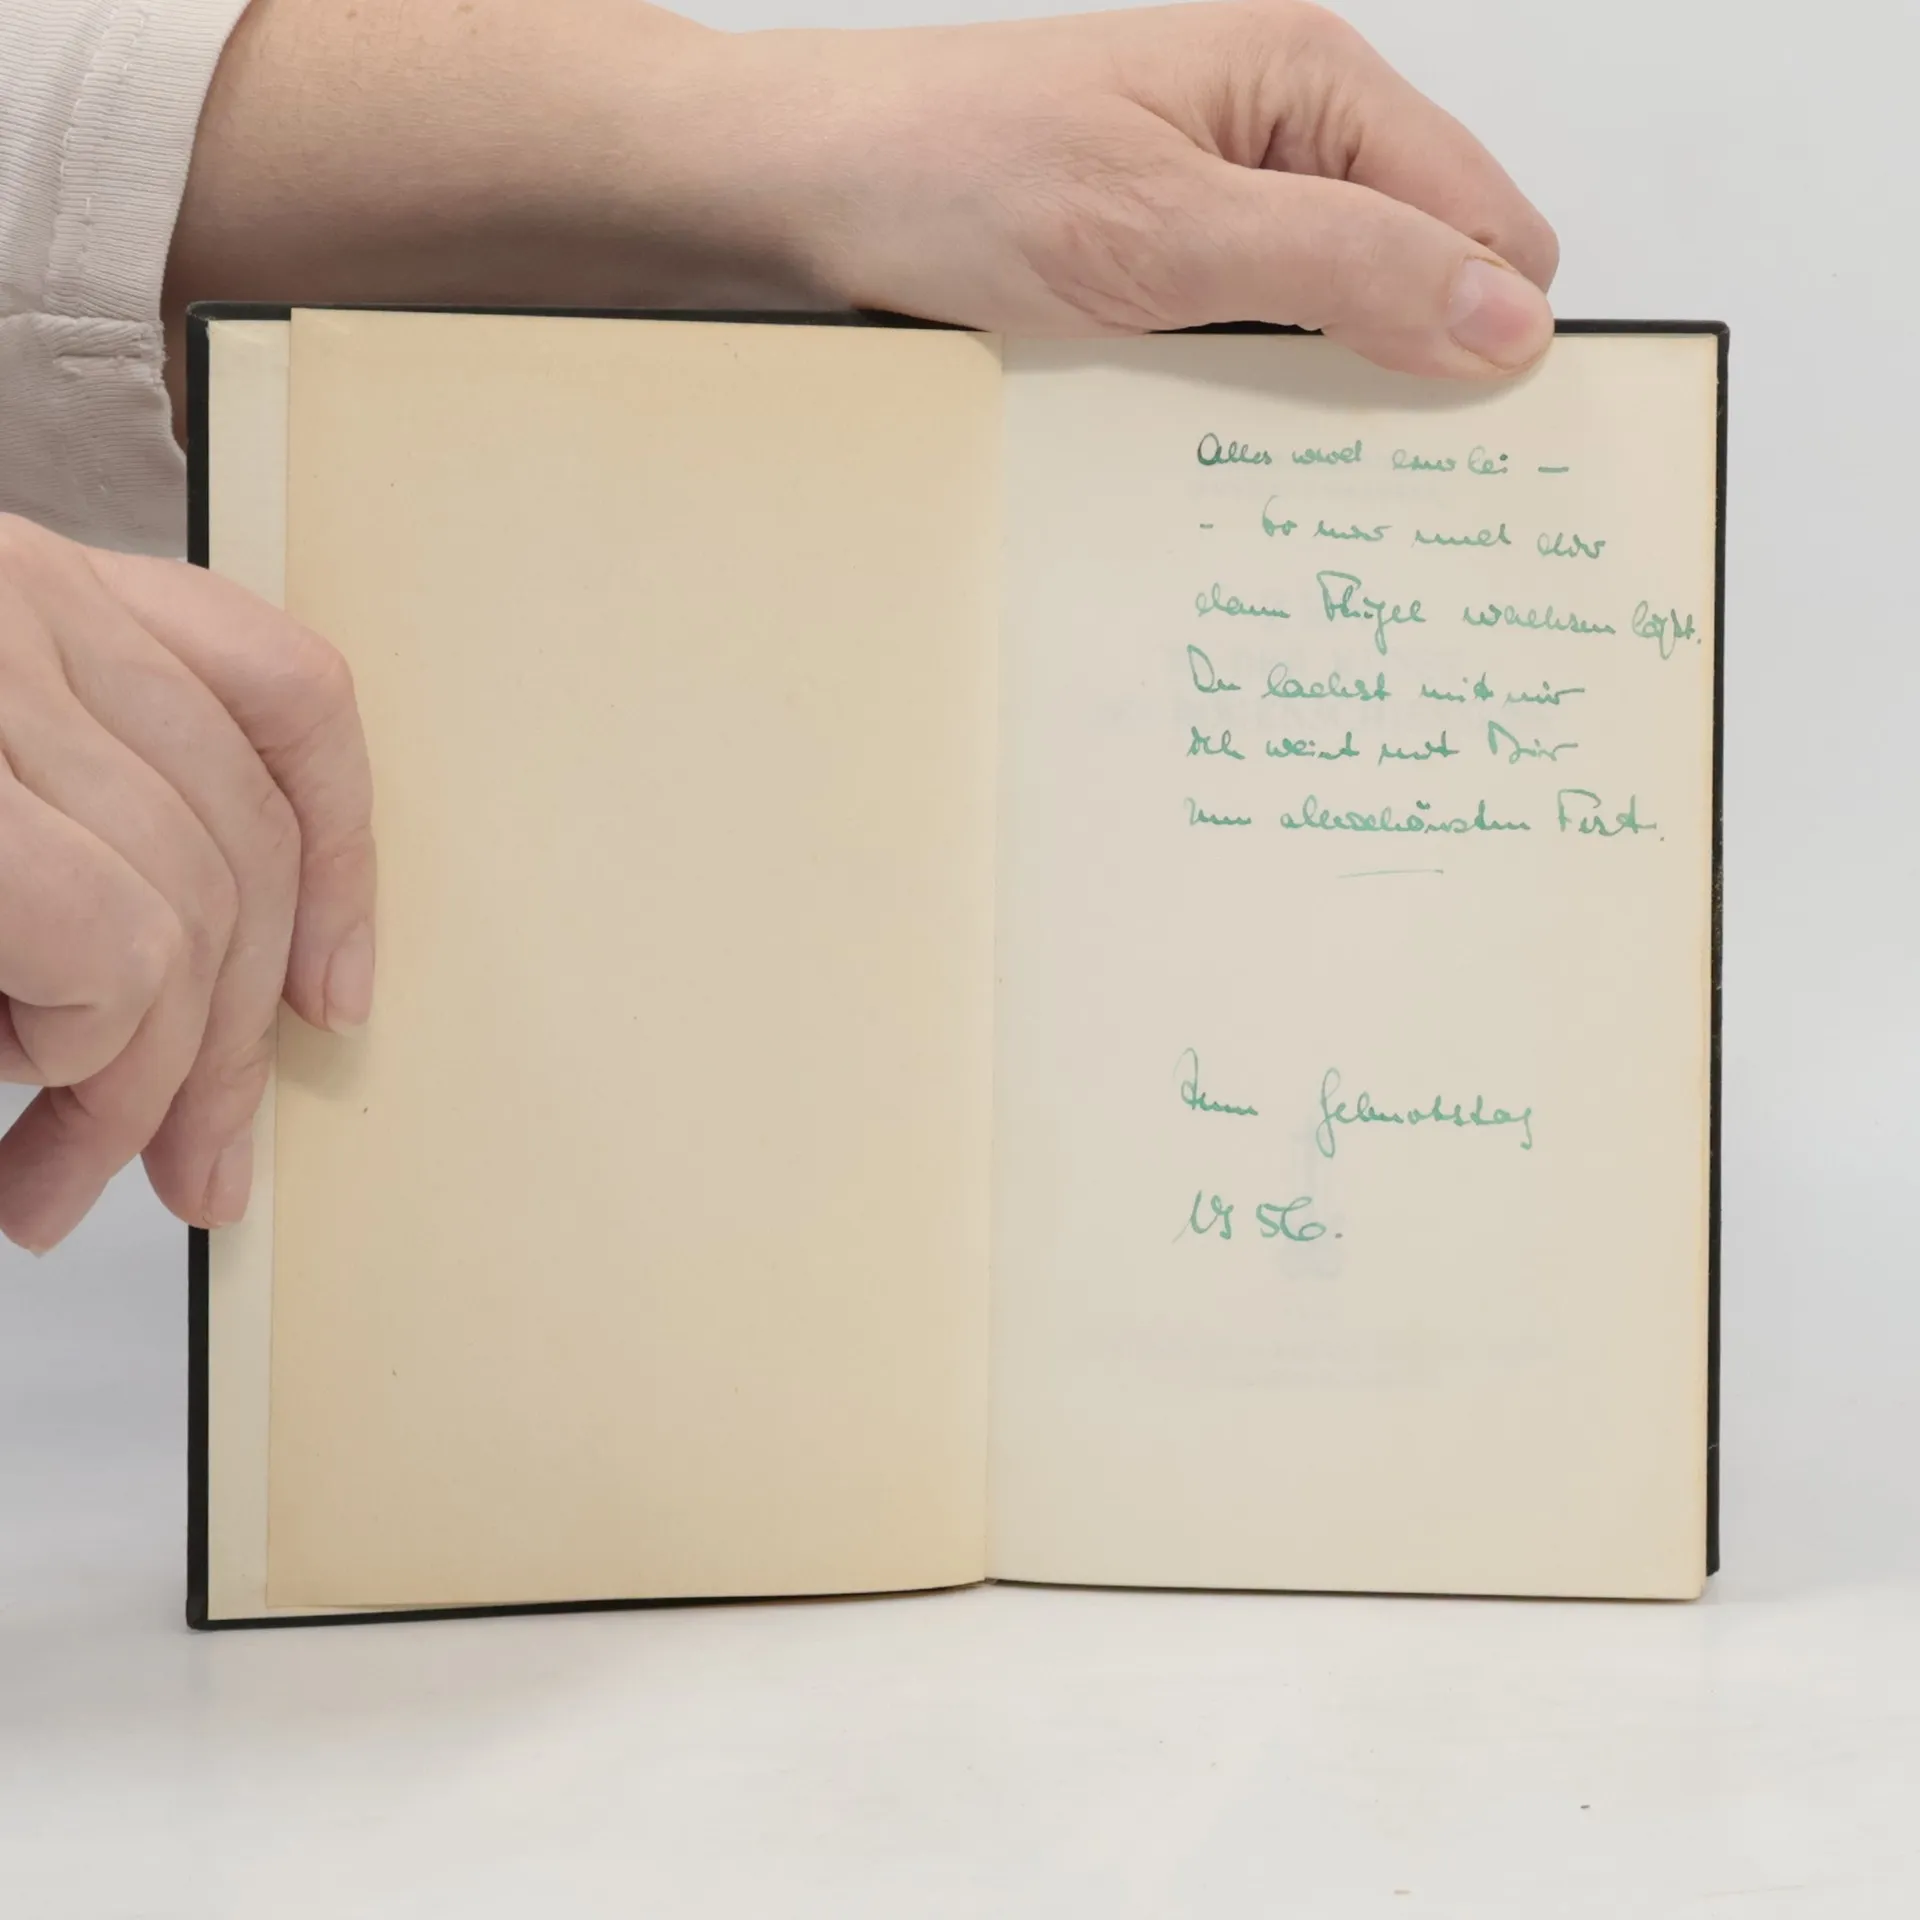 Alles wird einerlei —
- Do mir und dir
dann Flügel wachsen läßt.
Du lachst mit mir
ich weint mit Dir
zum allerschönsten Fest.
Zum Geburtstag
1956.